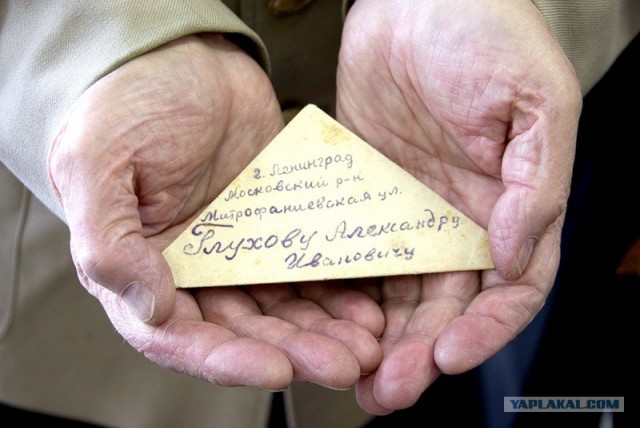 г. Ленинград
Московский р-н
Митрофаниевская ул.
Глухову Александру
Ивановичу
YAPLAKAL.COM